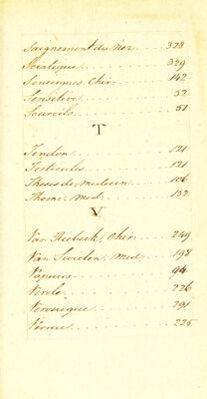 Saignement du Nez . . . . 328
Sciatique . . . . 329
Seneuques Chir . . . . 142
Sensitive . . . . 52
Sourcils . . . . 51
T
Tendon . . . . 121
Testicules . . . . 121
Theses de Medecin . . . . 106
Thome, Med . . . . 132
V
Van Rhebeck, Chir . . . . 249
Van Swieten, Med . . . . 198
Vapeurs . . . . 94
Verole . . . . 226
Veronique . . . . 291
Verrue . . . . 225